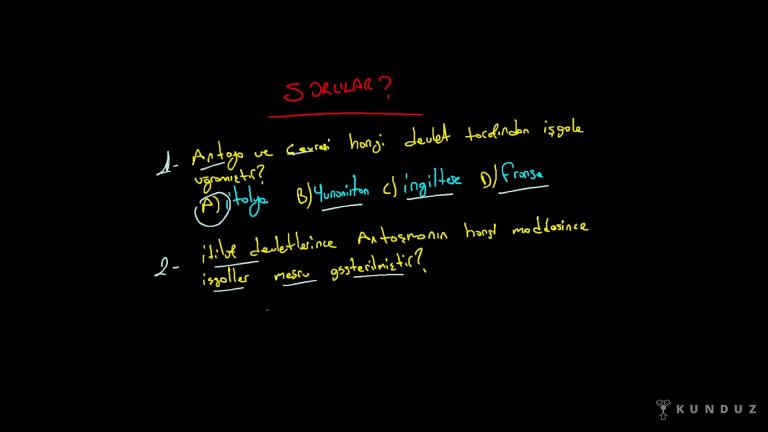 SORULAR?
1- Antalya ve çevresi hangi devlet tarafından işgale
uğramıştır?
A) italya B) Yunanistan C) ingiltere D) fransa
2- itilaf devletlerince Antlaşmanın hangi maddesince
işgaller meşru gösterilmiştir?
KUNDUZ